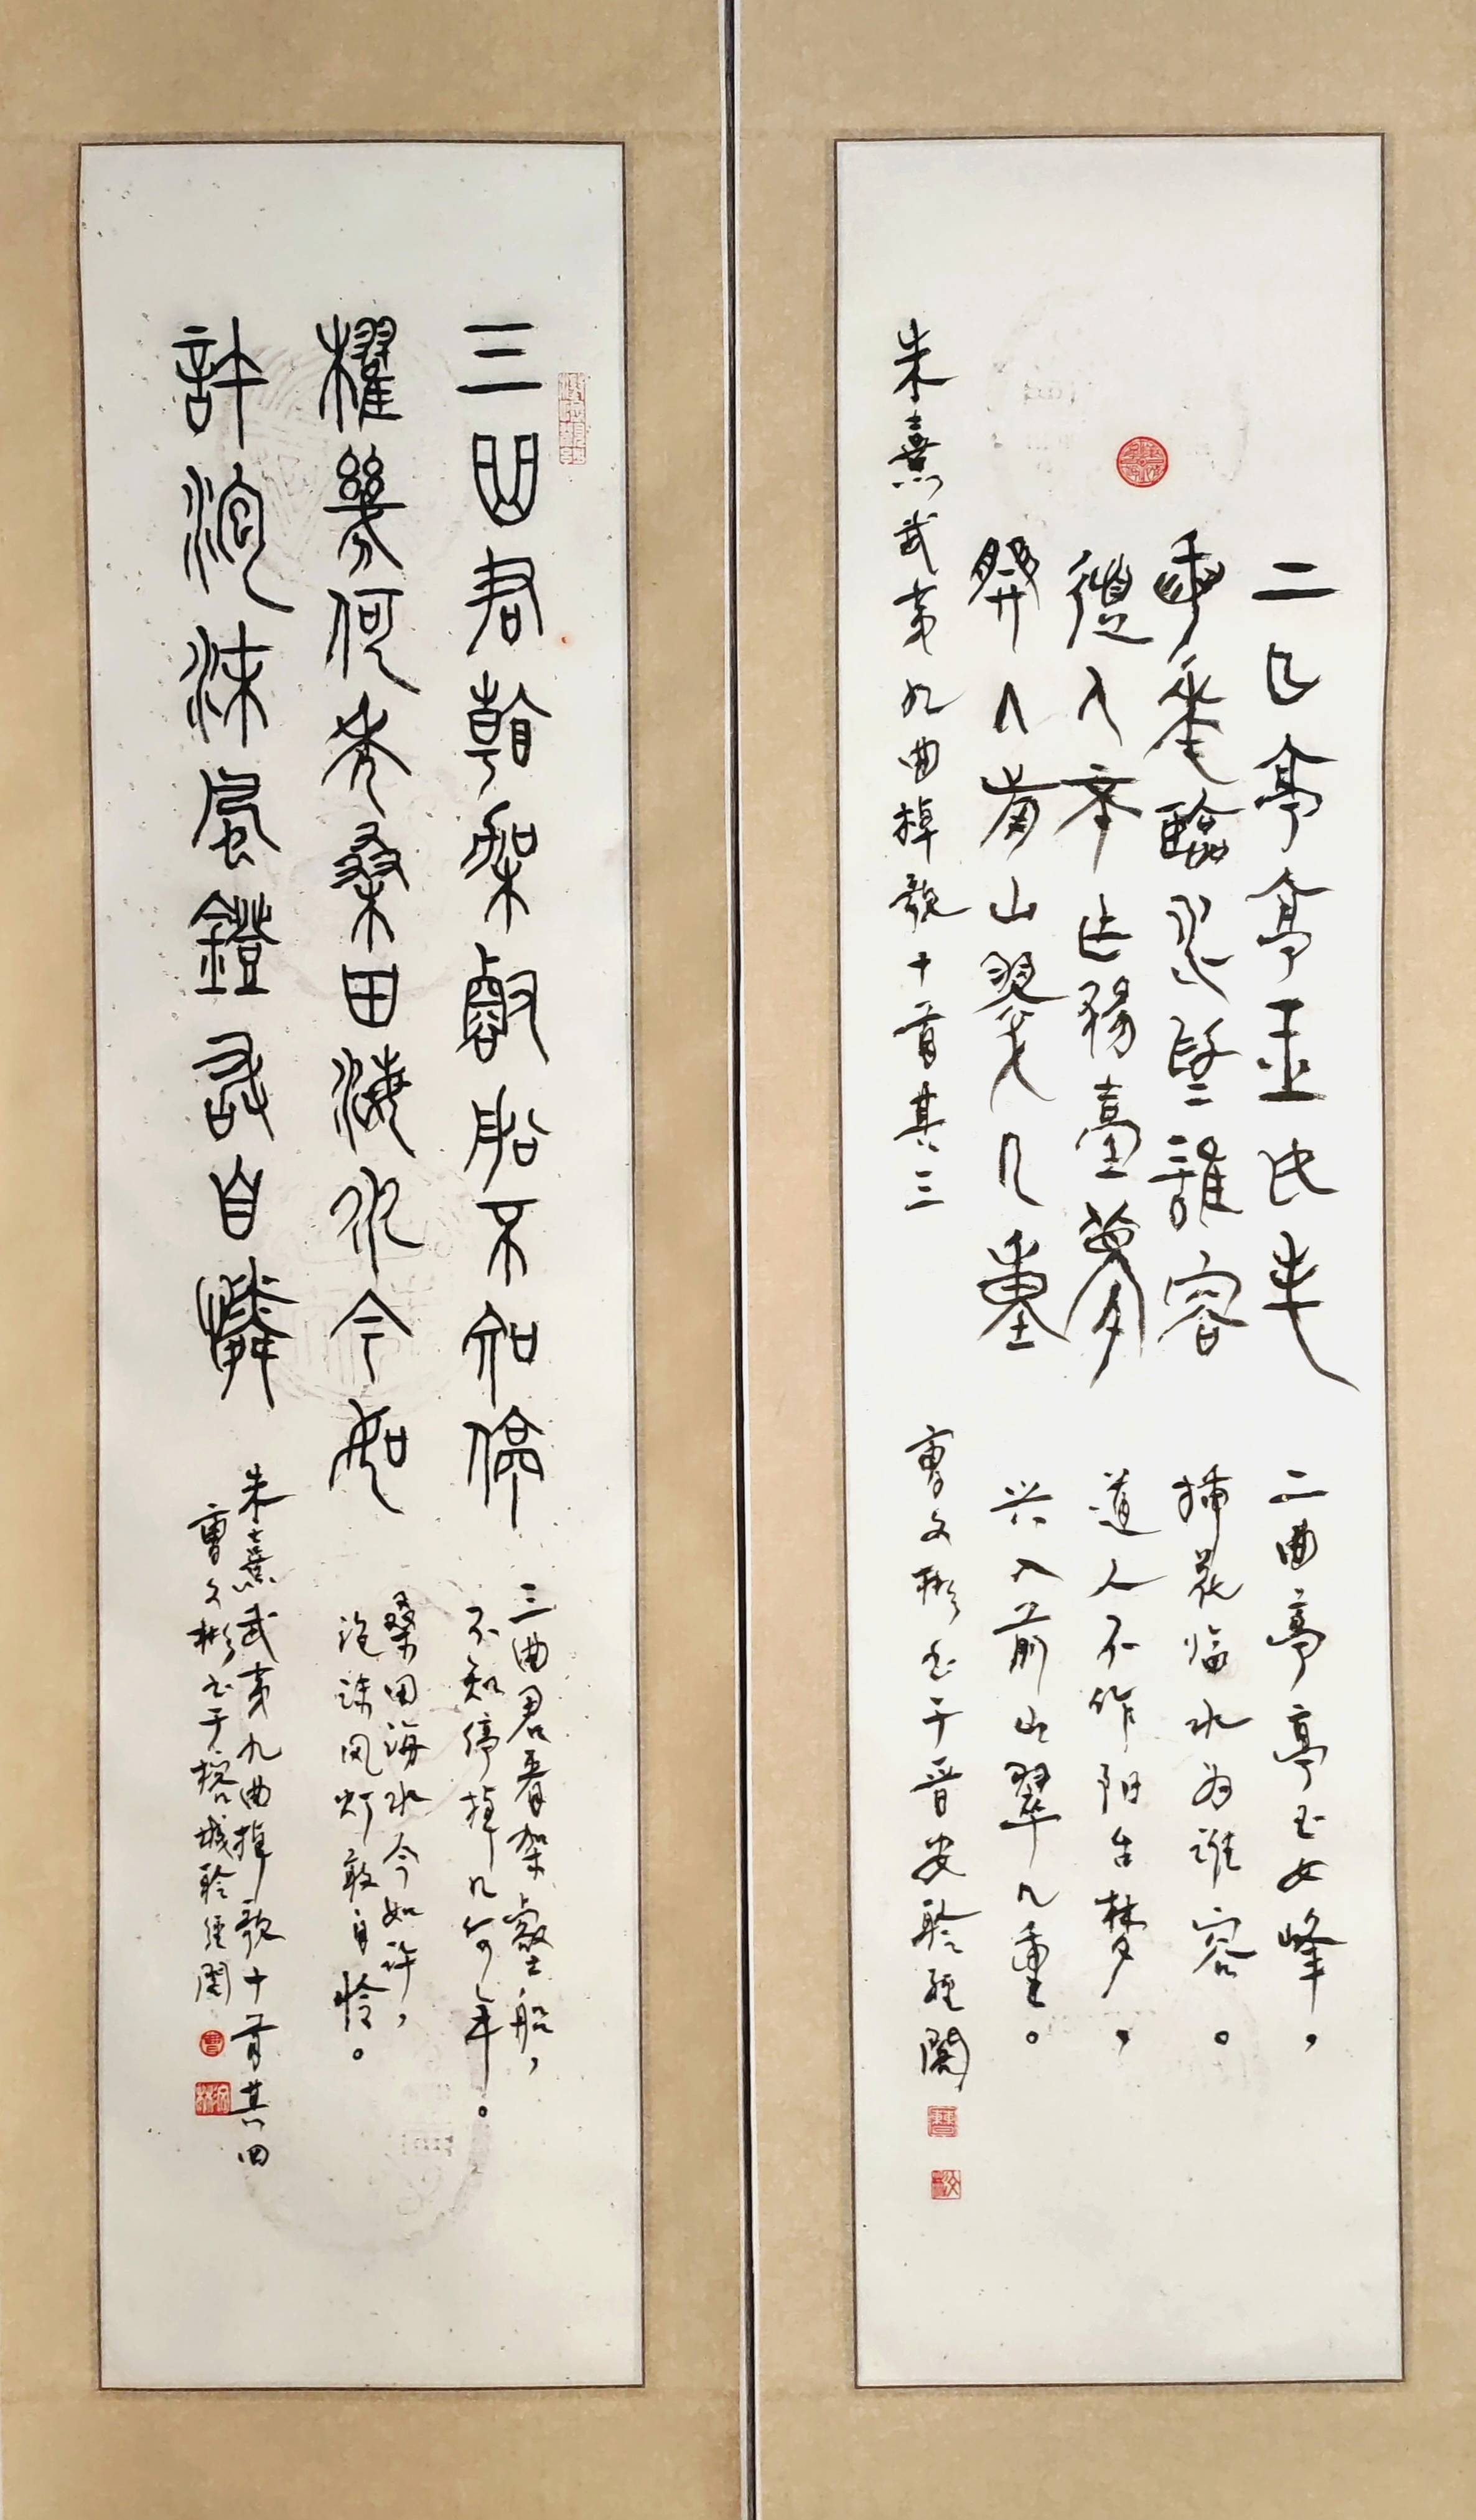 二曲亭亭玉女峰
插花臨水為誰容
道人不作陽臺夢
興入前山翠几重
朱熹武夷九曲棹歌十首其三
二曲亭亭玉女峰，
插花临水为谁容。
道人不作阳台梦，
兴入前山翠几重。
曹文彬书于晋安聆经阁
三曲君看架壑船不知停
櫂幾何年桑田海水今如
許泡沫風鐙敢自憐
三曲君看架壑船，
不知停棹几何年。
桑田海水今如许，
泡沫风灯敢自怜。
朱熹武夷九曲棹歌十首其四
曹文彬书于榕城聆经阁